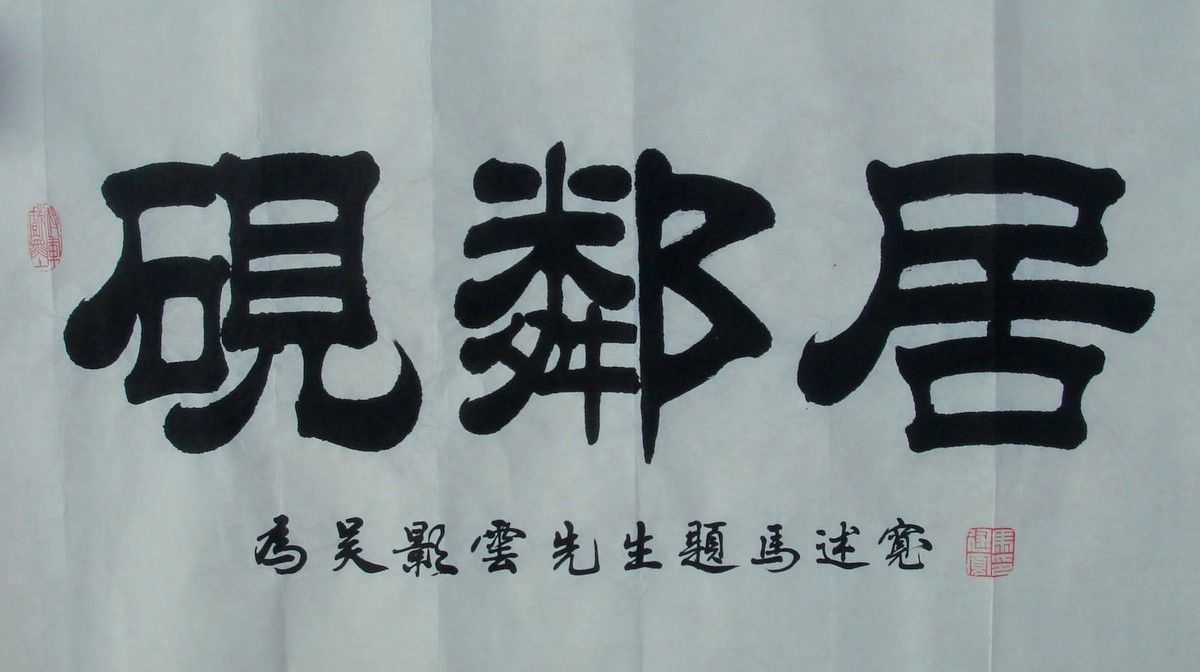 硯鄰居
為吴影雲先生題馬述寬